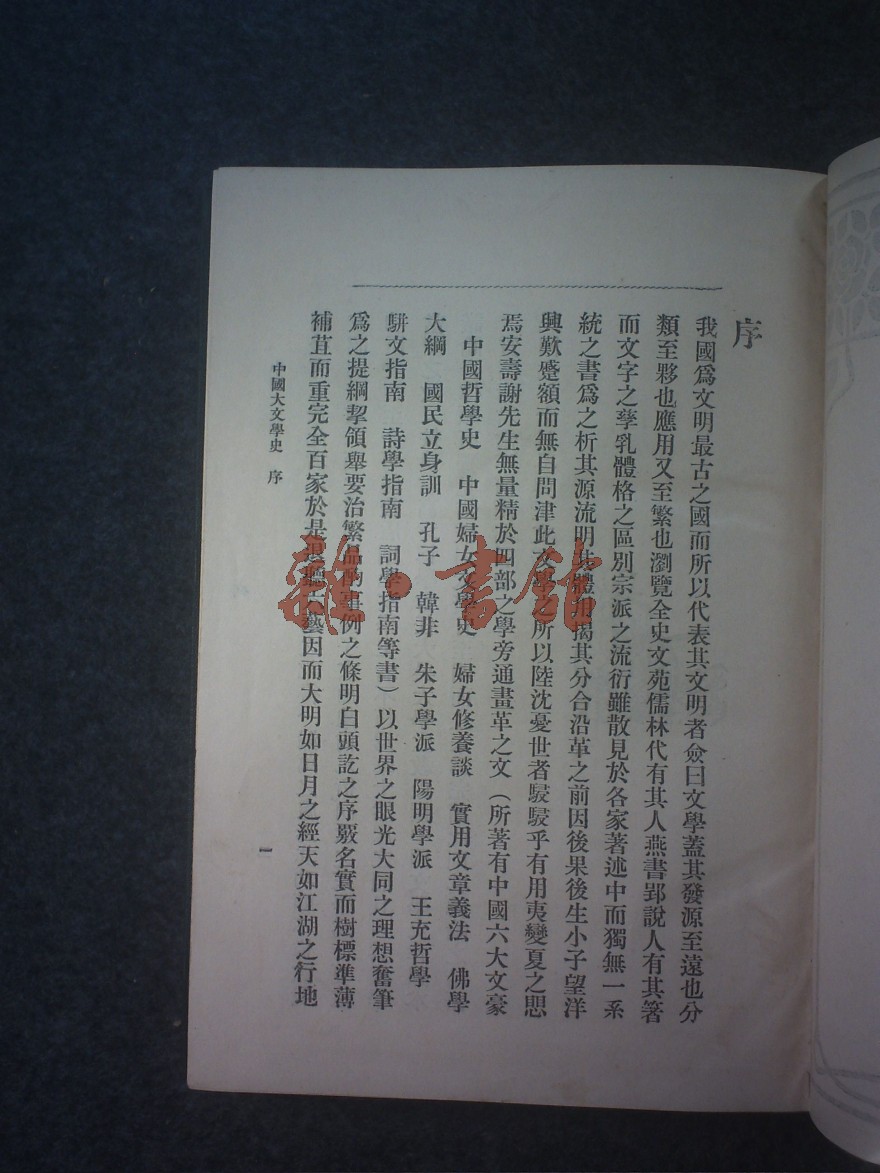 序
我國爲文明最古之國而所以代表其文明者僉曰文學蓋其發源至遠也分
類至夥也應用又至繁也瀏覽全史文苑儒林代有其人燕書郢說人有其箸
而文字之孳乳體格之區別宗派之流衍雖散見於各家著述中而獨無一系
統之書爲之析其源流明其體用揭其分合沿革之前因後果後生小子望洋
興歎蹙額而無自問津此文學之所以陸沈憂世者駸駸乎有用夷變夏之思
焉安壽謝先生無量精於四部之學旁通畫革之文（所著有中國六大文豪
中國哲學史 中國婦女文學史 婦女修養談 實用文章義法 佛學
大綱 國民立身訓 孔子 韓非 朱子學派 陽明學派 王充哲學
駢文指南 詩學指南 詞學指南等書）以世界之眼光大同之理想奮筆
爲之提綱挈領舉要治繁品酌事例之條明白頭訖之序覈名實而樹標準薄
補苴而重完全百家於是退聽六藝因而大明如日月之經天如江湖之行地
中國大文學史 序
一
雜·書館